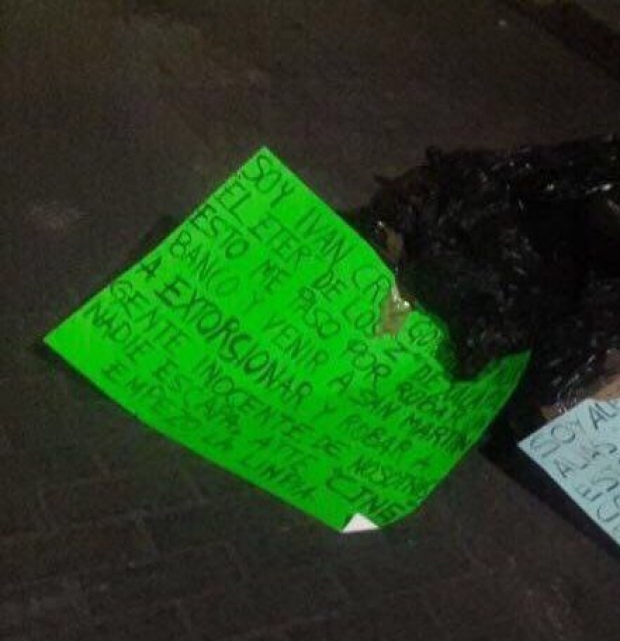 SOY IVAN CR
EL ETER DE LOS Z DE
ESTO ME PASO POR ROBAR
BANCO Y VENIR A SAN MARTIN
A EXTORCIONAR Y ROBAR A
GENTE INOCENTE DE NOSOTRO
NADIE ESCAPA ATTE CINE
EMPEZO LA LIMPIA
SOY AL
ALIAS